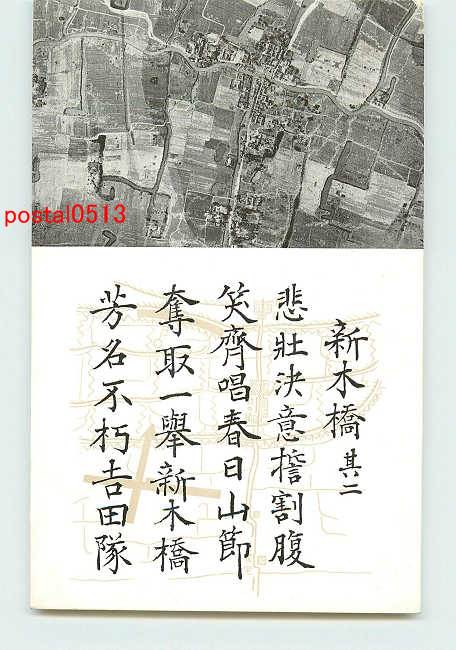 postal0513
新木橋 其二
悲壯決意擔割腹
笑齊唱春日山節
奪取一擧新木橋
芳名不朽吉田隊